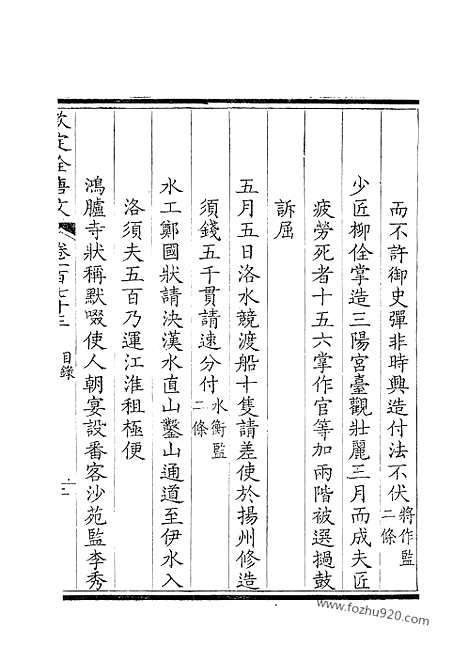 而不許御史彈非時興造付法不伏將作監二條
少匠柳佺掌造三陽宮臺觀壯麗三月而成夫匠
疲勞死者十五六掌作官等加兩階被選撾鼓
訴屈
五月五日洛水競渡船十隻請差使於揚州修造
須錢五千貫請速分付水衡監二條
水工鄭國狀請決漢水直山鑿山通道至伊水入
洛須夫五百乃運江淮租極便
鴻臚寺狀稱默啜使人朝宴設番客沙苑監李秀
欽定全唐文
卷一百七十三
目錄
www.fozhu920.com